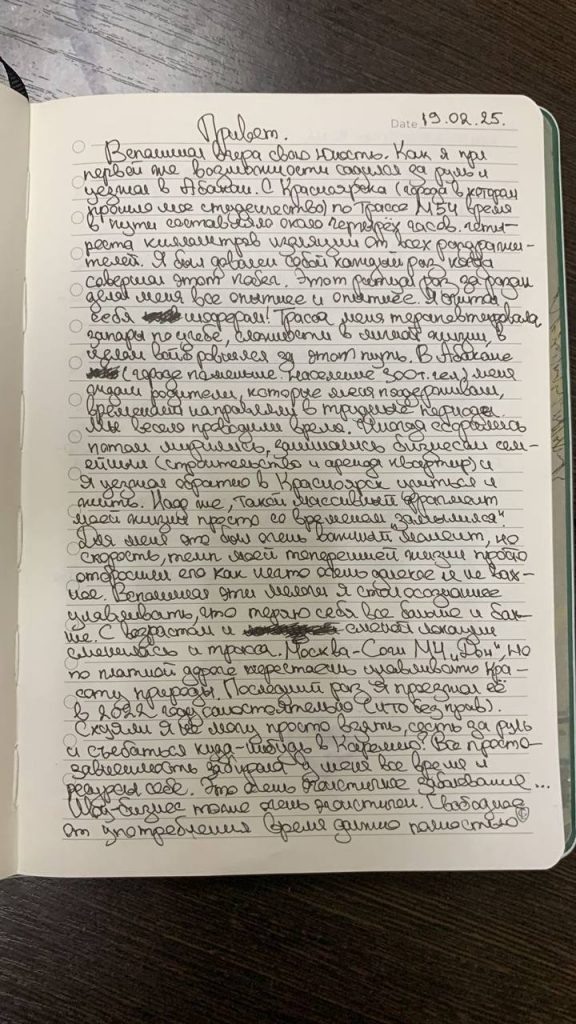 Date 19.02.25.
Привет.
Вспоминал вчера свою юность. Как я при
первой же возможности садился за руль и
уезжал в Абакан. С Красноярска (города в котором
прошло мое студенчество) по трассе М54 время
в пути составляло около четырёх часов. четы-
реста километров изоляции от всех раздражи-
телей. Я был доволен собой каждый раз, когда
совершал этот побег. Этот ритуал раз за разом
делал меня все опытнее и опытнее. Я считал
себя шофером! Трасса меня терапевтировала,
запары по учебе, сложности в личной жизни, в
целом вайб ровнялся за этот путь. В Абакане
(городе поменьше. население 300т. чел.) меня
ждали родители, которые меня поддерживали,
временами направляли в трудные периоды.
Мы весело проводили время. Иногда ссорились
потом мирились, занимались бизнесом сем-
ейным (строительство и аренда квартир) и
я уезжал обратно в Красноярск учиться и
жить. Надо же, такой массивный фрагмент
моей жизни просто со временем „замылился“.
Для меня это был очень важный момент, но
скорость, темп моей теперешней жизни просто
отбросили его как нечто очень далекое и не важ-
ное. Вспоминая эти мелочи я стал осознаннее
улавливать, что теряю себя все больше и боль-
ше. С возрастом и сменой локации
сменилась и трасса. Москва-Сочи М4 „Дон“, но
по платной дороге перестаешь улавливать кра-
соту природы. Последний раз я проезжал её
в 2022 году самостоятельно (и то без прав).
Скуяли я не могу просто взять, сесть за руль
и съебаться куда-нибудь в Карелию? Все просто-
зависимость забирала у меня все время и
ресурсы себе. Это очень эгоистичное ебланование...
Шоу-бизнес тоже очень эгоистичен. Свободное
от употребления время должно полностью